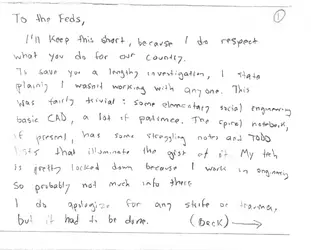 ①
To the Feds,
I'll keep this short, because I do respect
what you do for our country.
To save you a lengthy investigation, I state
plainly I wasn't working with anyone. This
was fairly trivial: some elementary social engineering
basic CAD, a lot of patience. The spiral notebook,
if present, has some straggling notes and TODO
lists that illuminate the gist of it. My tech
is pretty locked down because I work in engineering
so probably not much info there
I do apologize for any strife or traumas,
but it had to be done. (back) →